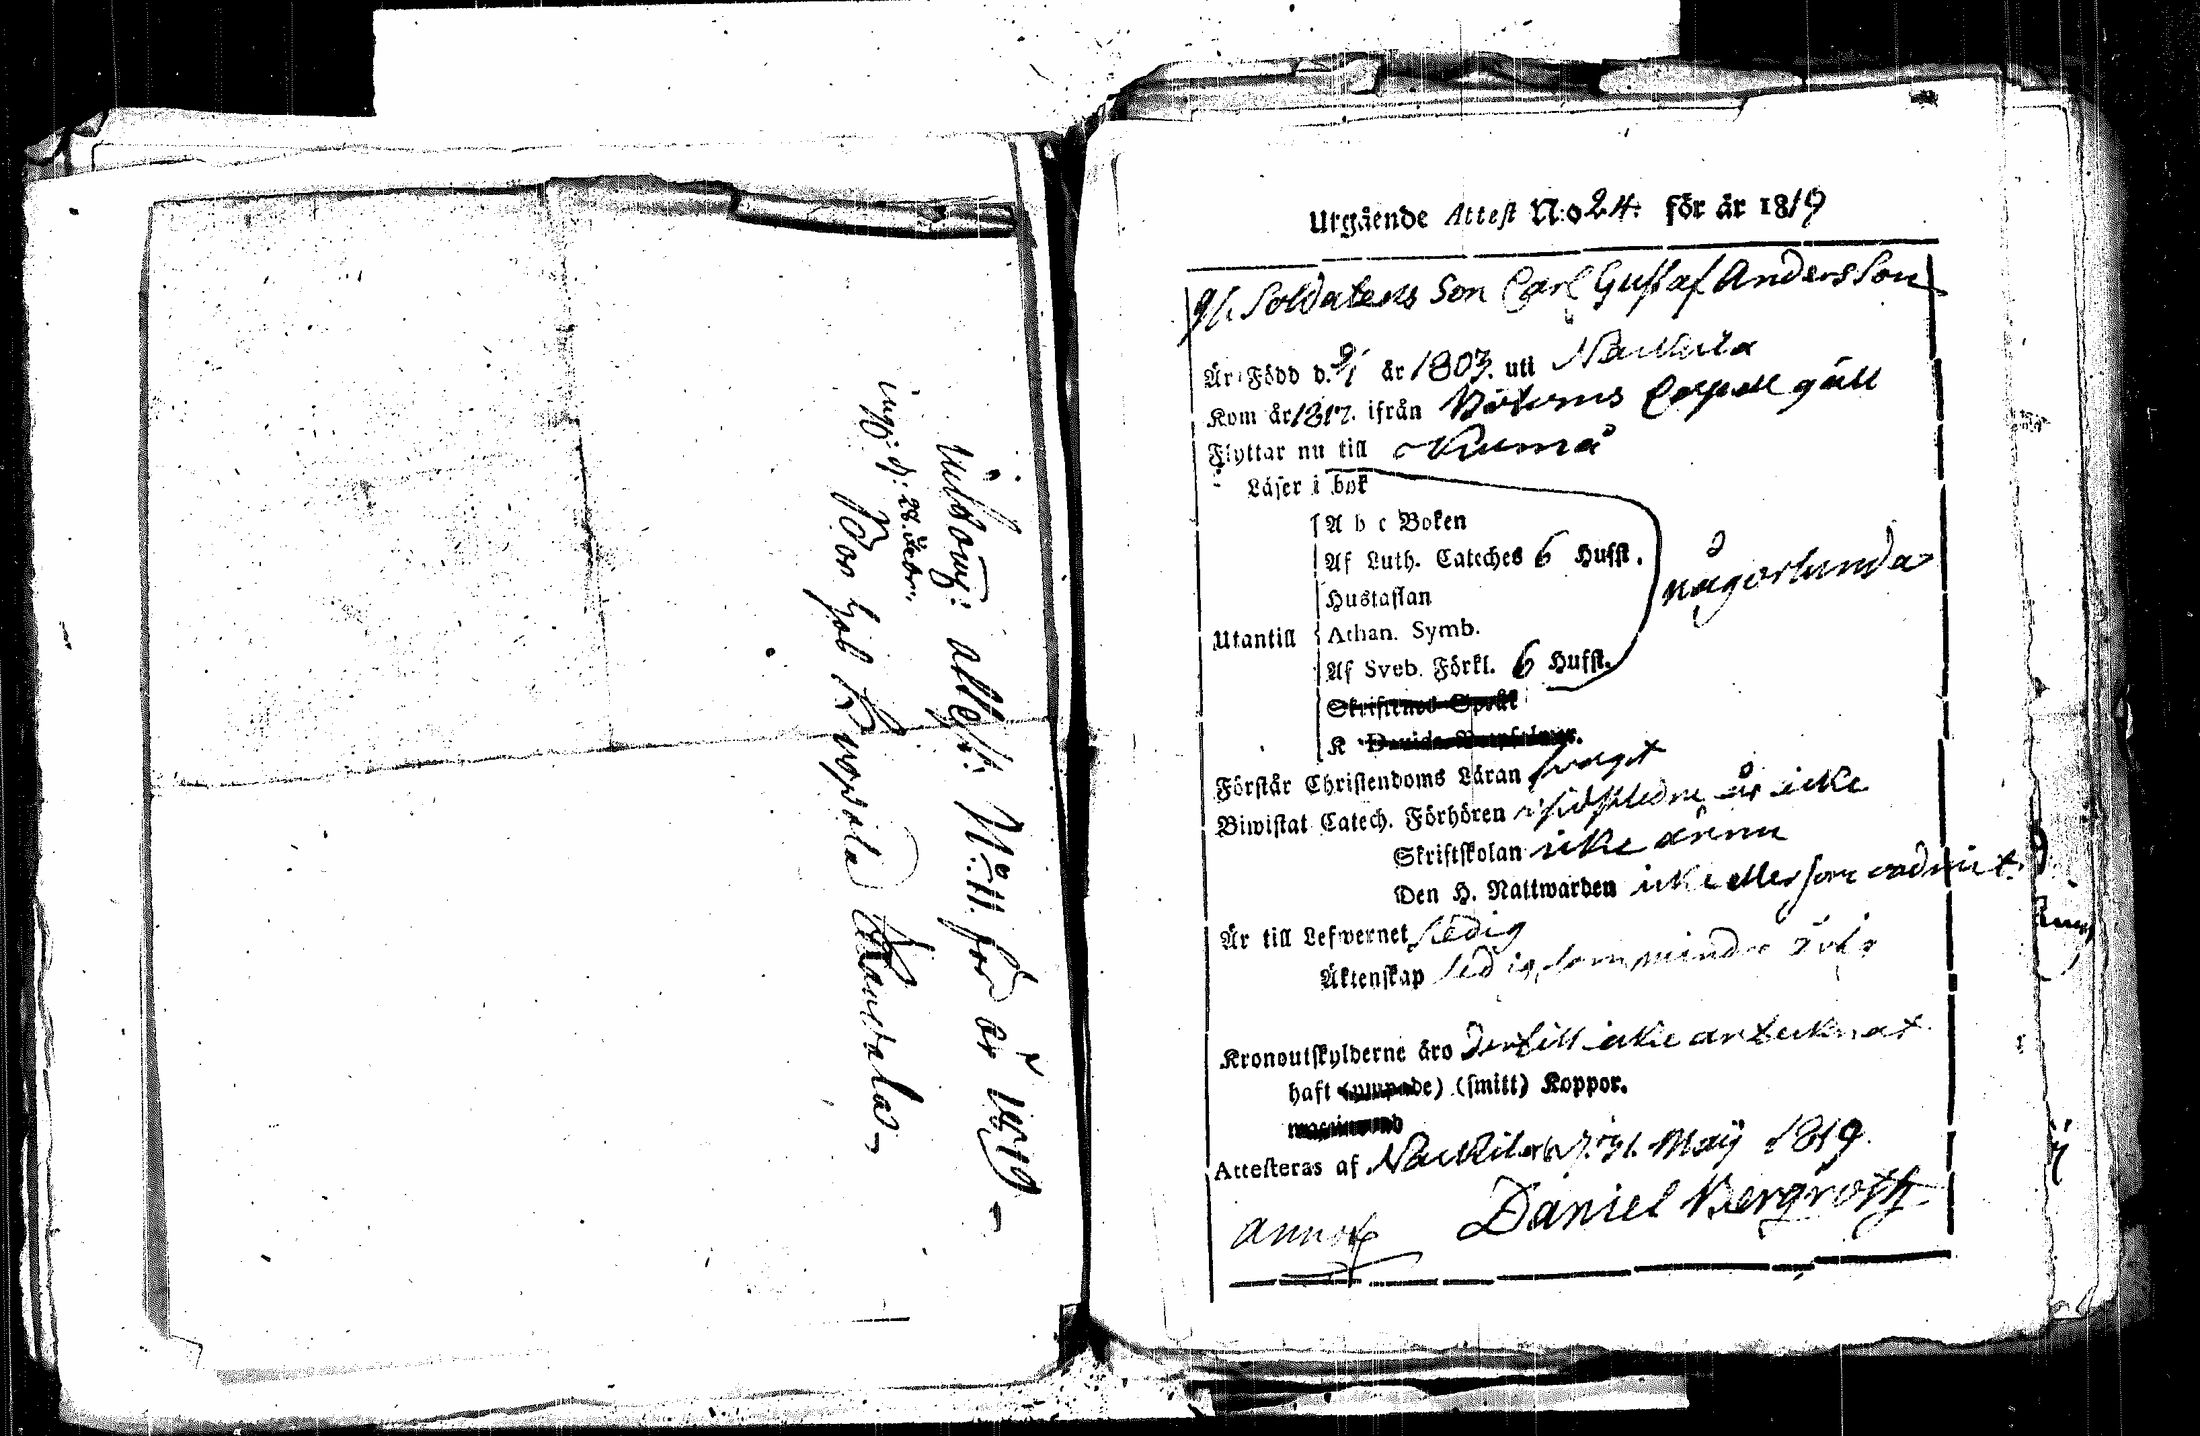 Inkom: attest: No: 11. för år 1819
ingg: d: 28. Febr:
För Job
Utgående Attest N:o 24. för år 1819
Soldatens Son Carl Gustaf Andersson
Är Född d. 9/1 år 1803. uti Nackila
Kom år 1817. ifrån Capell gäll
Flyttar nu till Kumå
Läser i bok
A b c Boken
Af Luth. Cateches 6 Hufst.
någorlunda
Hustaflan
Utantill Athan. Symb.
Af Sveb. Förkl. 6 Hufst.
Skriftenes Språk
K Davids
Förstår Christendoms Läran svagt
Biwistat Catech. Förhören sidstledne år icke
Skriftskolan icke ännu
Den H. Nattwarden icke eller som
Är till Lefwernet sedig
Äktenskap ledig, som mindre årig
Kronoutskylderne äro dertill icke antecknat
haft (smitt) Koppor.
Attesteras af Nackila d. 31. Maÿ 1819.
Daniel Bergroth
annot